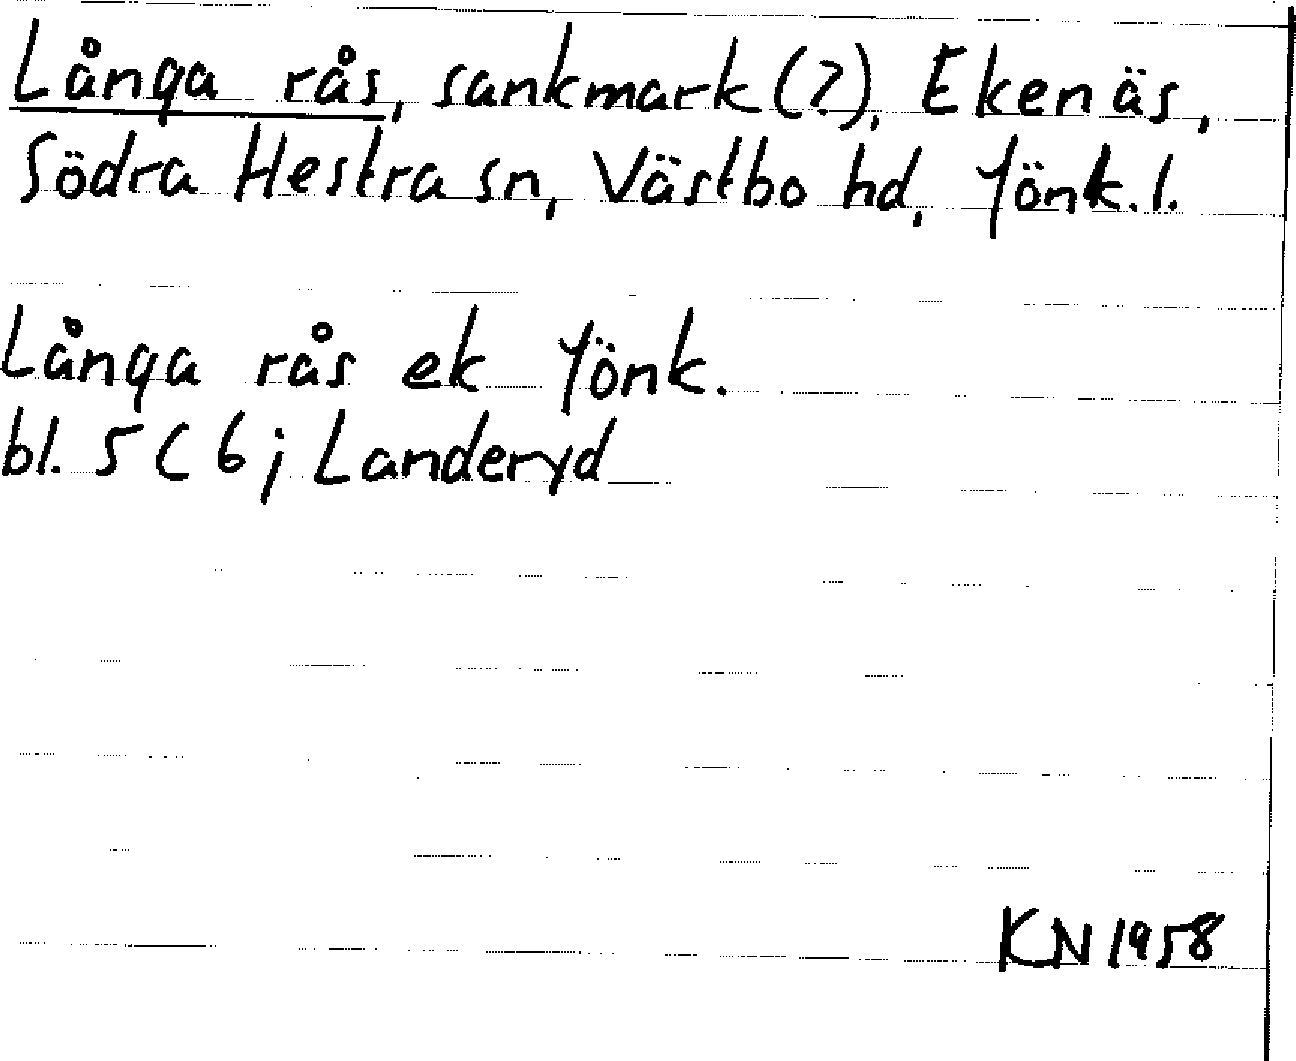 Långa rås, sankmark (?), Ekenäs,
Södra Hestra sn, Västbo hd, Jönk. l.
Långa rås ek Jönk.
bl. 5 C 6 j Landeryd
KN 1958